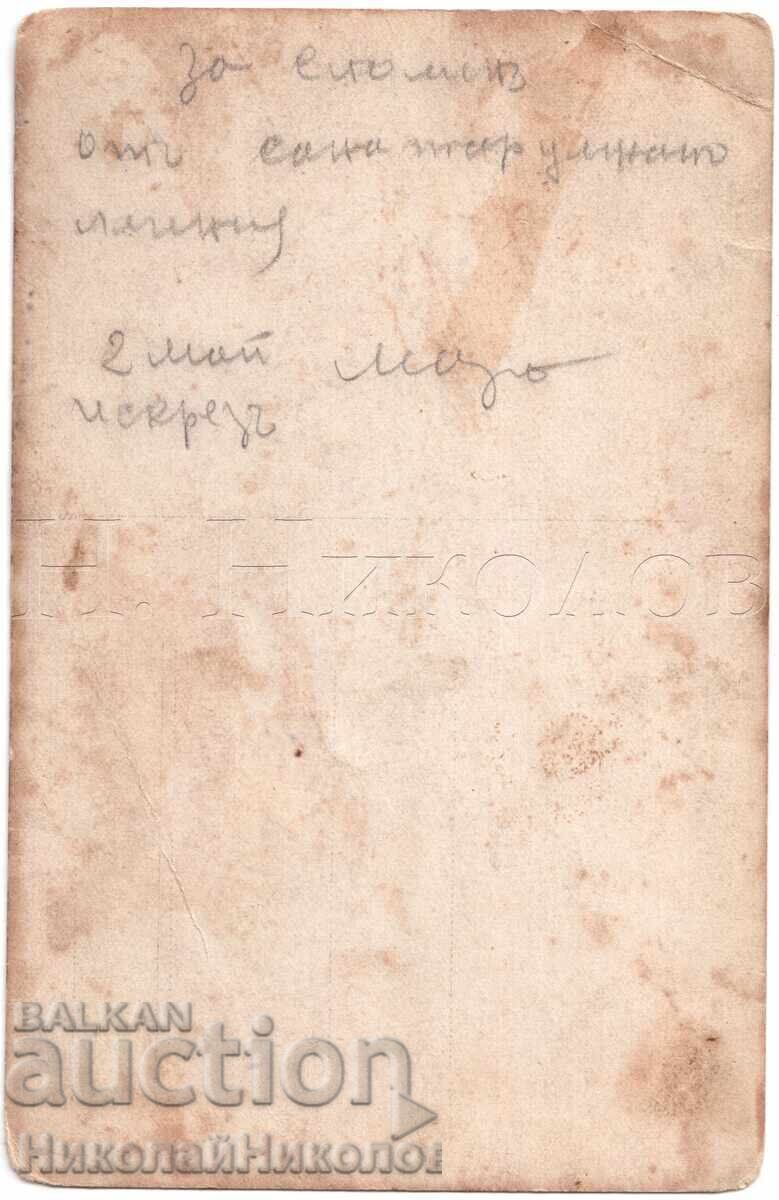 за споменъ
отъ санаториумното
лечение
2 май
Искрецъ
Н. Николов
BALKAN
auction
НиколайНиколов